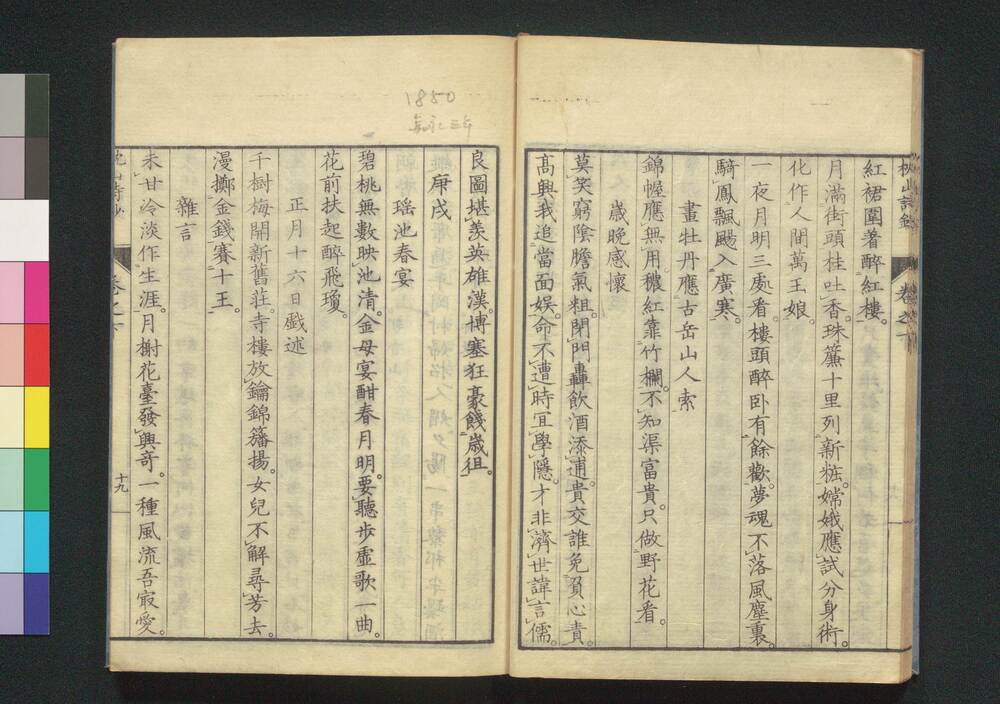 枕山詩鈔 卷之下
紅裙圍著醉紅樓。
月滿街頭桂吐香。珠簾十里列新粧。嫦娥應試分身術。
化作人間萬玉娘。
一夜月明三處看。樓頭醉卧有餘歡。夢魂不落風塵裏。
騎鳳飄颺入廣寒。
畫牡丹應古岳山人索
錦幄應無用穠紅靠竹欄。不知渠富貴。只做野花看。
歲晚感懷
莫笑窮陰膽氣粗。閉門轟飲酒添逋。貴交誰免負心責。
高興我追當面娛。命不遭時宜學隱。才非濟世諱言儒。
1850
嘉永三年
良圖堪羨英雄漢。博塞狂豪餞歲徂。
庚戌
瑤池春宴
碧桃無數映池清。金母宴酣春月明。要聽步虛歌一曲。
花前扶起醉飛瓊。
正月十六日戲述
千樹梅開新舊莊。寺樓放鑰錦籓揚。女兒不解尋芳去。
漫擲金錢賽十王。
雜言
未甘冷淡作生涯。月榭花臺發興奇。一種風流吾寂愛。
十九